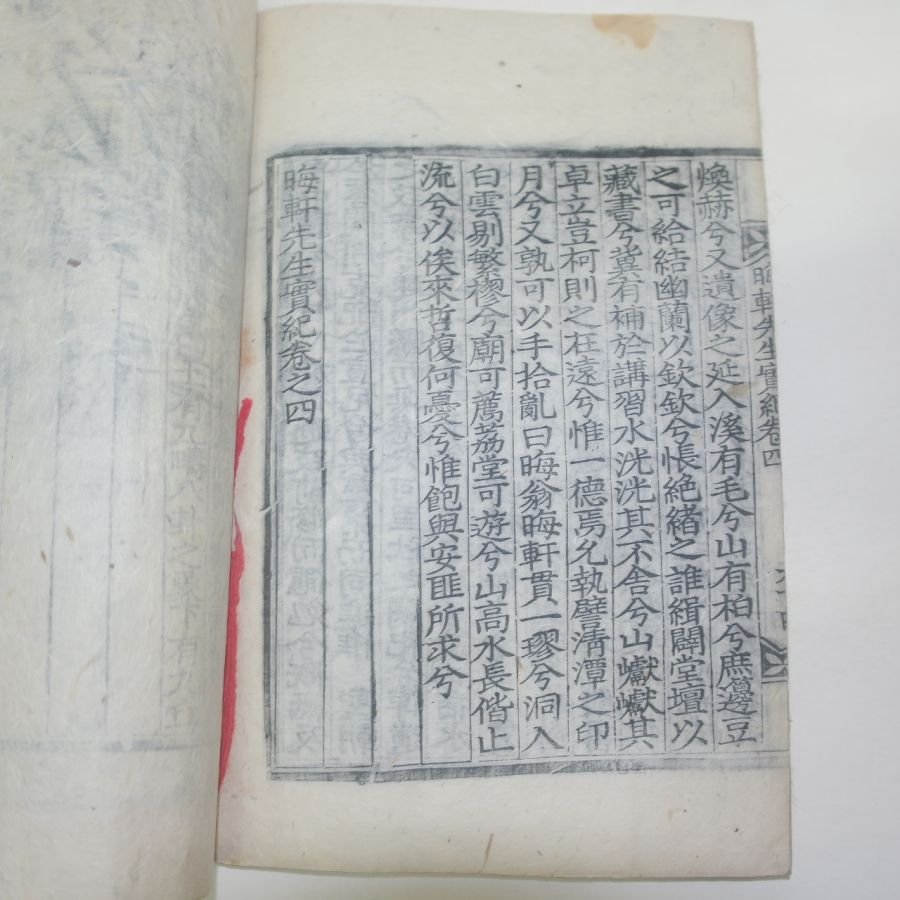 晦軒先生實紀卷四
煥赫兮又遺像之延入溪有毛兮山有柏兮庶籩豆
之可給結幽蘭以欽欽兮悵絶緖之誰緝闢堂壇以
藏書兮冀有補於講習水洸洸其不舍兮山巘巘其
卓立豈柯則之在遠兮惟一德焉允執譬淸潭之印
月兮又孰可以手拾亂曰晦翁晦軒貫一璆兮洞入
白雲剔繁樛兮廟可薦荔堂可遊兮山高水長偕止
流兮以俟來哲復何憂兮惟飽與安匪所求兮
晦軒先生實紀卷之四